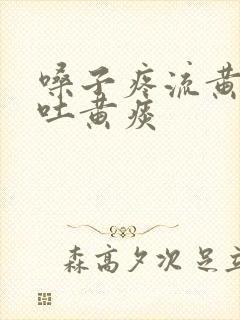 嗓子疼流黄
吐黄痰
森高夕次 足立